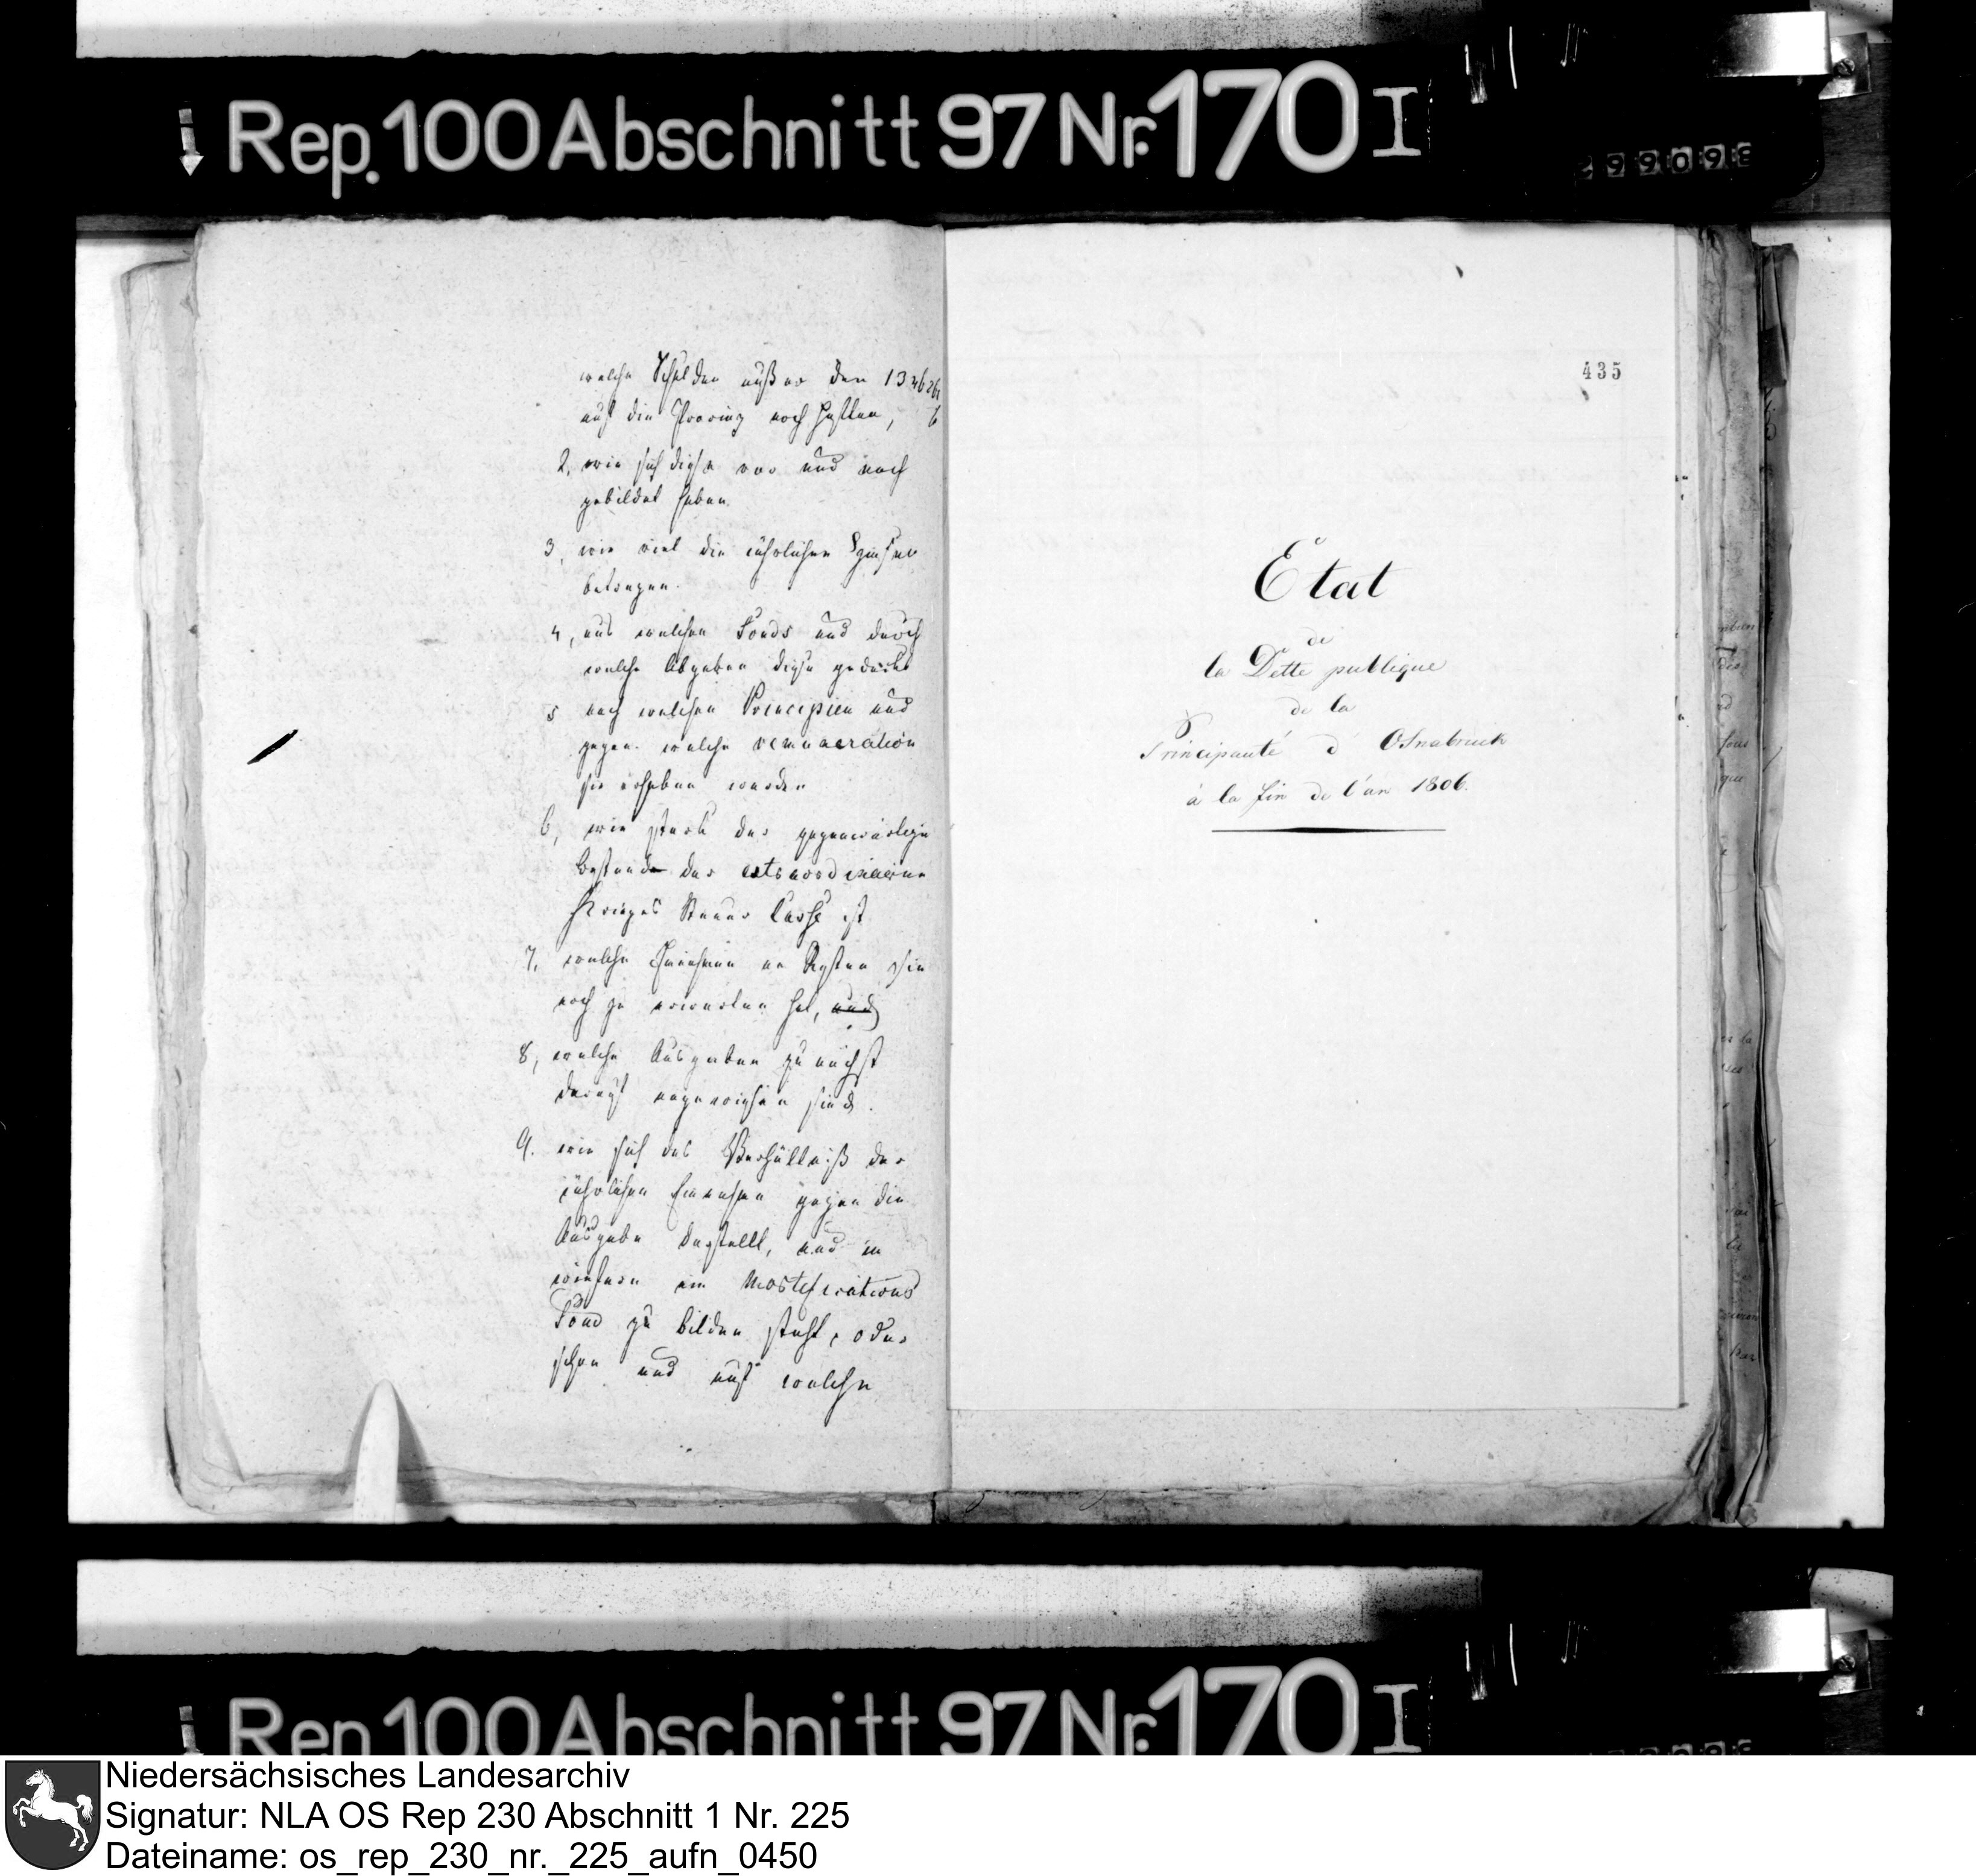 Rep. 100 Abschnitt 97 Nr. 170 I
welche Schulden außer den
auf die Provinz noch haften,
2. wie sich diese vor und nach
gebildet haben.
3, wie viel die jährlichen Zinsen
betragen.
4, aus welchen Fonds und durch
welche Abgaben diese gedeckt
5 nach welchen Principien und
gegen welche remuneration
sie erhoben werden
6, wie stark der gegenwärtige
Bestand der extraordinairen
Krieges Steuer Casse ist
7, welche Einnahmen an Resten sie
noch zu erwarten hat, und
8, welche Ausgaben zunächst
darauf angewiesen sind.
9. wie sich das Verhältniß der
jährlichen Einnahmen gegen die
Ausgabe darstellt, und in
wiefern ein
Fond zu bilden steht, oder
schon und auf welche
435
Etat
de
la Dette publique
de la
Principauté d'Osnabruck
à la fin de l'an 1806.
Rep. 100 Abschnitt 97 Nr. 170 I
Niedersächsisches Landesarchiv
Signatur: NLA OS Rep 230 Abschnitt 1 Nr. 225
Dateiname: os_rep_230_nr._225_aufn_0450